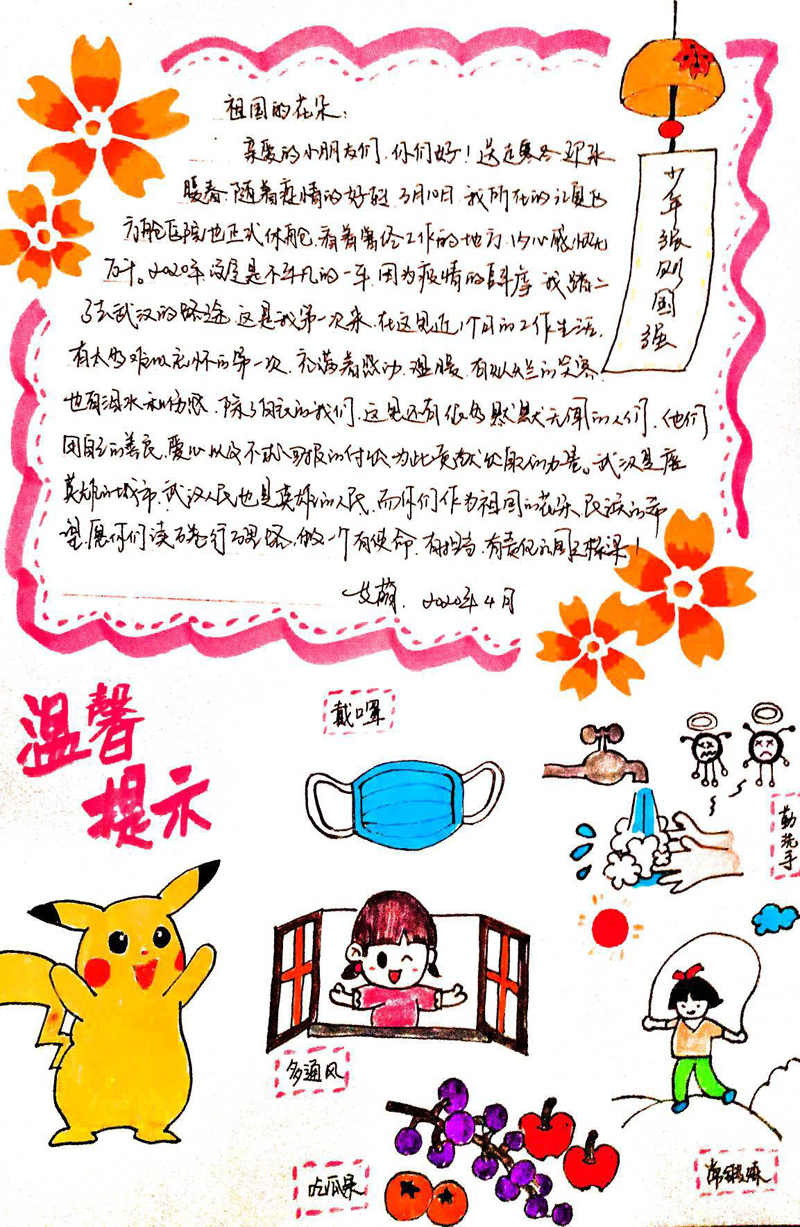 祖国的花朵：
亲爱的小朋友们，你们好！送走寒冬迎来
暖春，随着疫情的好转，3月10日，我所在的江夏
方舱医院也正式休舱，看着曾经工作的地方，内心感慨
万千。2020年注定是不平凡的一年，因为疫情的, 我踏上
去武汉的路途，这是我第一次来，在这里近1个月的工作生活，
有太多难以忘怀的第一次，充满着感动，温暖，有的笑容，
也有泪水和伤感，除了白衣的我们，这里还有很多默默无闻的人们，他们
用自己的善良，爱心以及不求回报的付出，为此贡献出自己的力量。武汉是座
英雄的城市，武汉人民也是英雄的人民，而你们作为祖国的花朵，民族的希
望，愿你们读万卷行万里路，做一个有使命，有担当，有责任的国之栋梁！
艾萌，2020年4月
少年强则国强
温馨
提示
戴口罩
勤洗手
多通风
吃瓜果
常锻炼